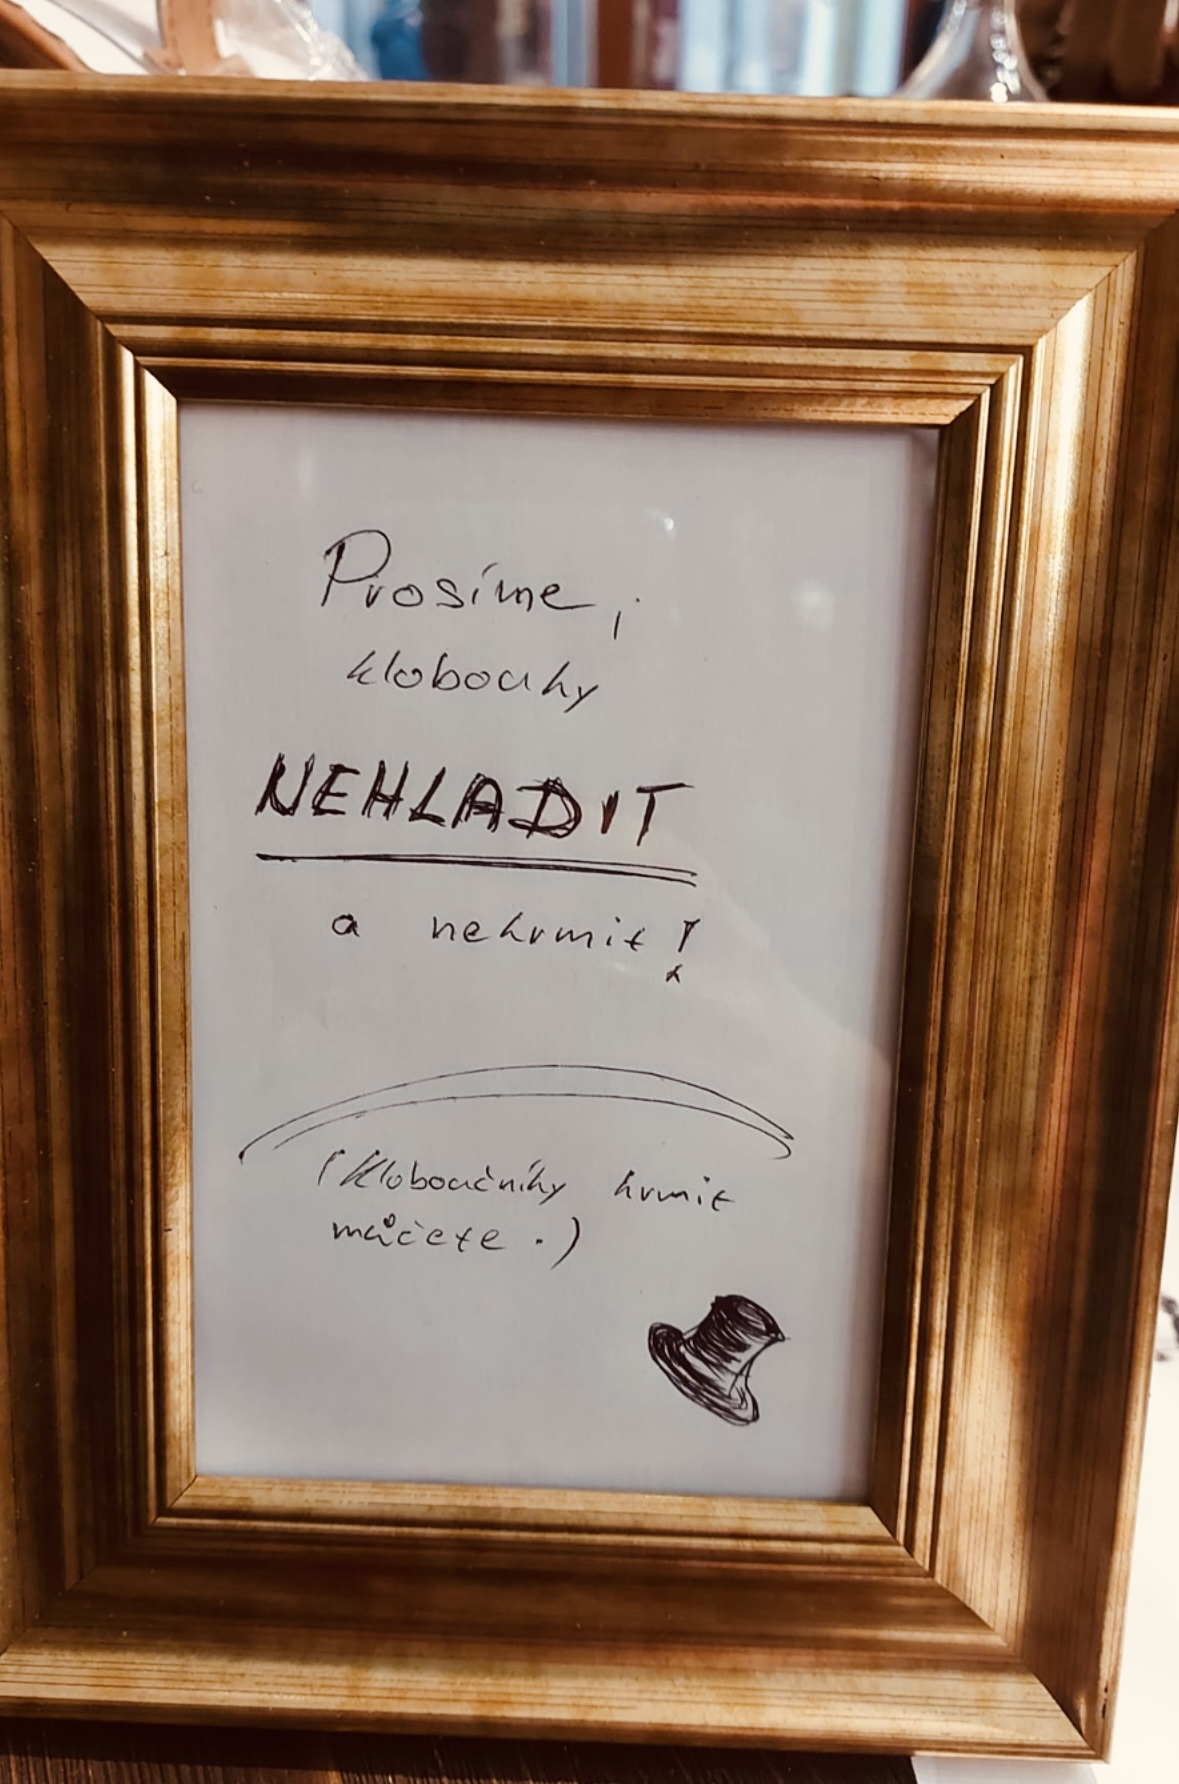 Prosíme,
klobouky
NEHLADIT
a nekrmit!
(Kloboučníky krmit
můžete.)